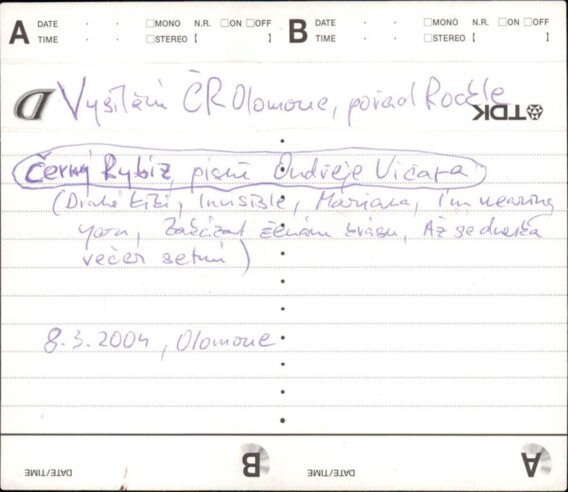 A DATE . . □MONO N.R. □ON □OFF
TIME . . □STEREO [ ]
B DATE . . □MONO N.R. □ON □OFF
TIME . . □STEREO [ ]
D TDK
Vysílání ČR Olomouc, pořad
Černý Rybíz, písně Ondřeje Vičara
(Druhé břehy, Invisible, Mariana, I'm wearing
you, Zakázat ženám krásu, Až se dneska
večer setmí)
8.3.2004, Olomouc
DATE/TIME B DATE/TIME A